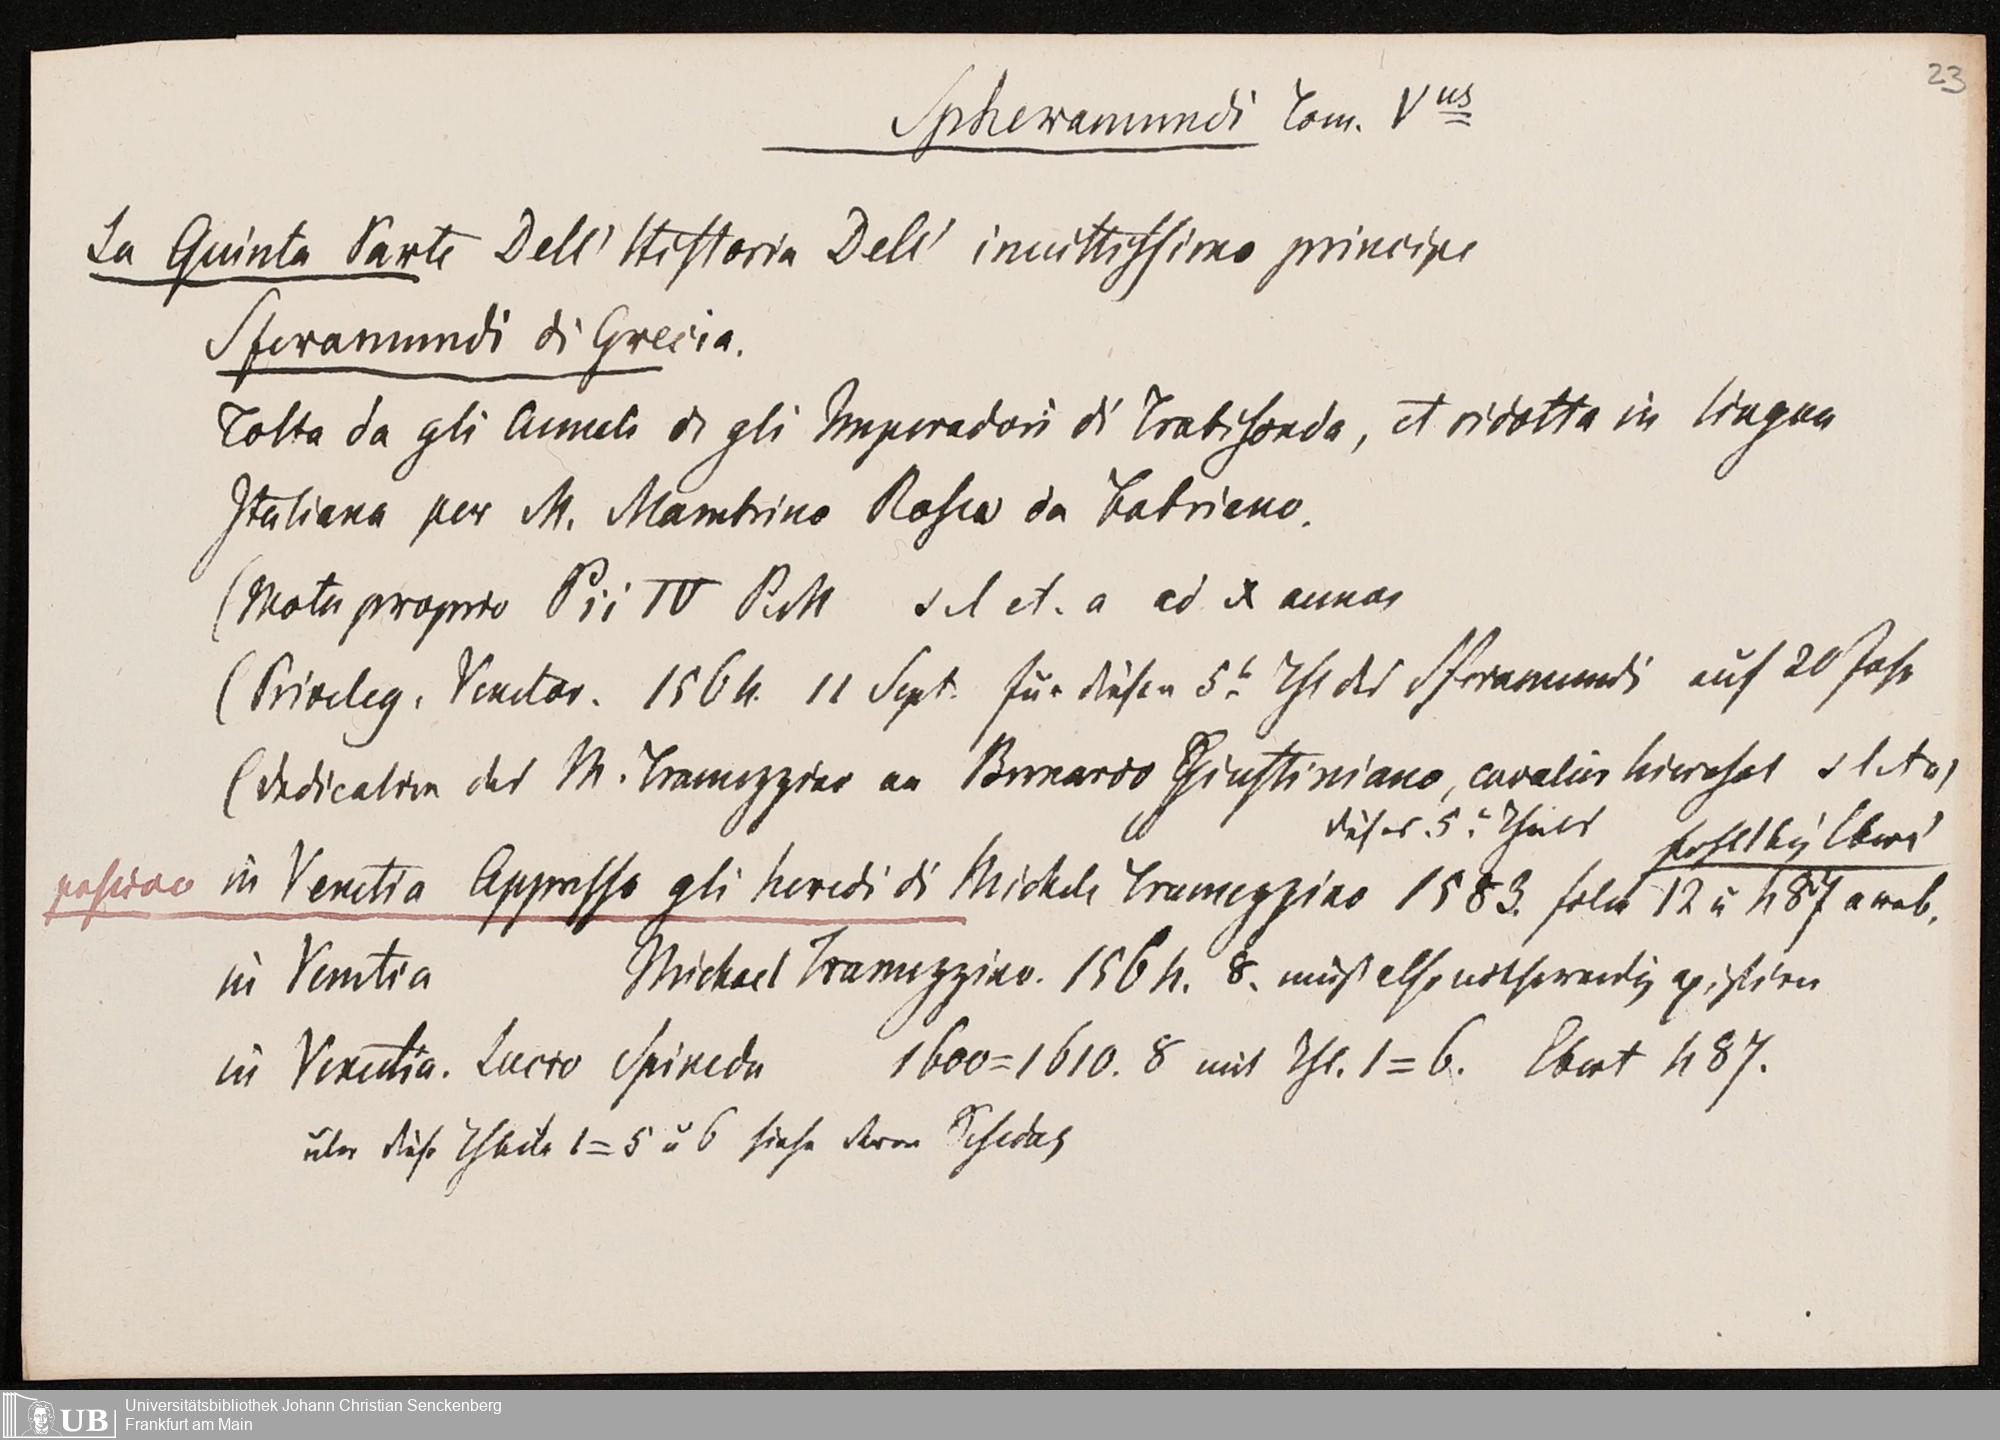 23
Spheramundi Tom. V us
La Quinta Parte Dell' Historia Dell' inuittissimo principe
Sferamundi di Grecia.
Tolta da gli Annali di gli Imperadori di Trabisonda, et ridotta in lingua
Italiana per M. Mambrino Rosea da Fabriano.
(Motu proprio Pii IV P.M s l et. a ad X annos
(Privileg. Venetor. 1564. 11 Sept. für diesen 5n Thl des Sferamundi auf 20 Jahr
(Dedication des M. Tramezzino an Bernardo Giustiniano, cavalier s l et a)
dieses 5n Theils fehlt bey Ebert
possideo in Venetia Appresso gli heredi di Michele Tramezzino 1583. folia 12 u 487
in Venetia Michael Tramezzino. 1564. 8. muß also nothwendig existiren
in Venetia. Lucio Spineda 1600=1610. 8 mit Thl. 1=6. Ebert 487.
über diese Theile 1=5 u 6 siehe deren Schedas